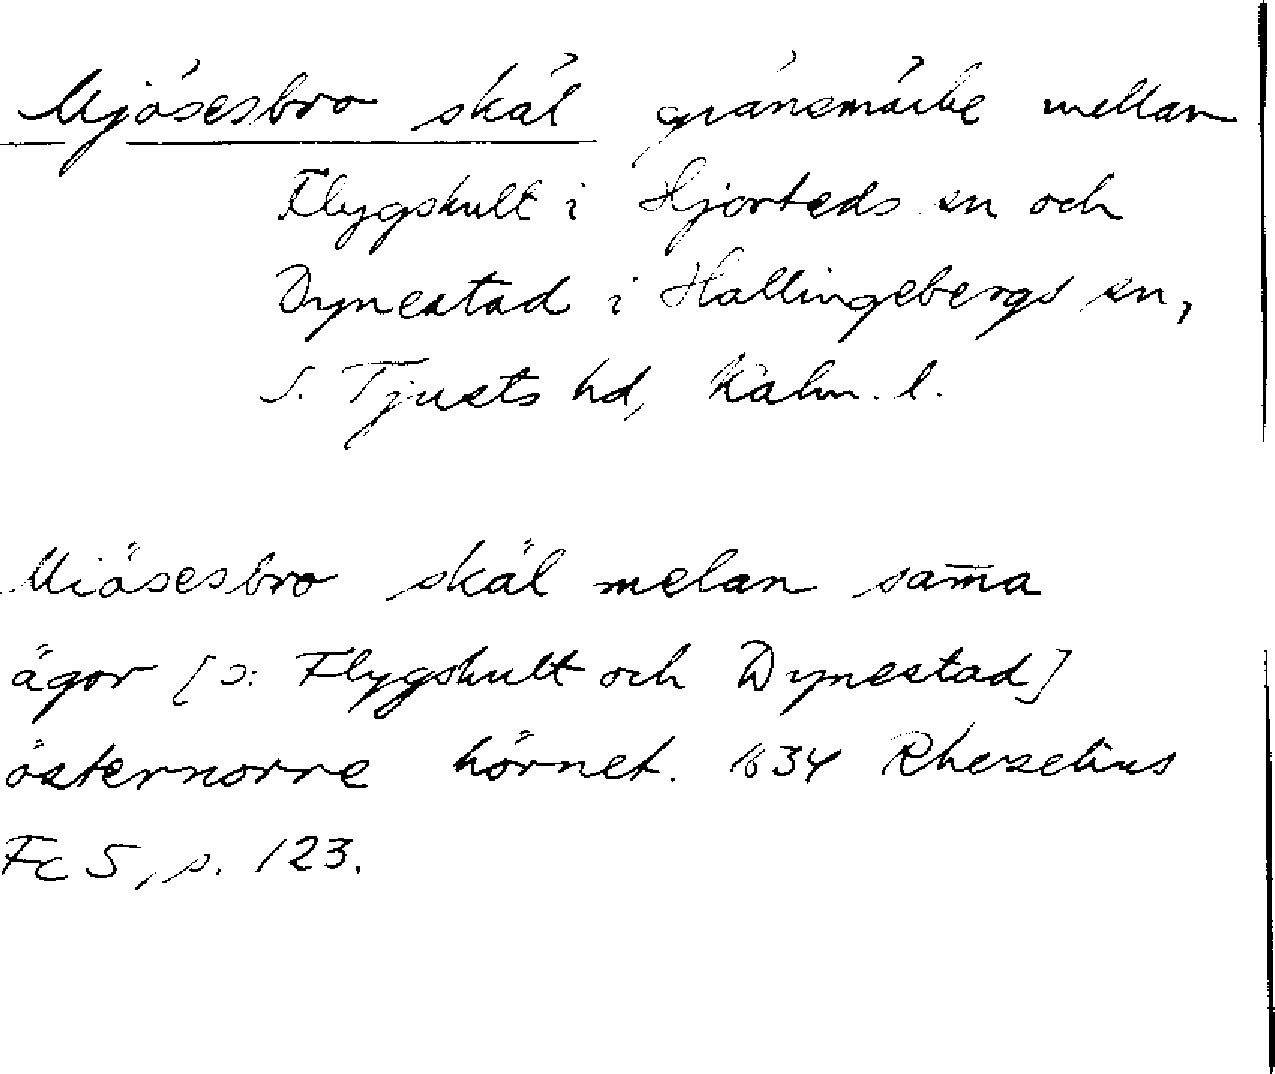 Mjösesbro skäl gränsmärke mellan
Flygskult i Hjorteds sn och
Dynestad i Hallingebergs sn,
S. Tjusts hd, Kalm. l.
Miösesbro skäl melan sam̄a
ägor [ɔ: Flygskult och Dynestad]
östernorre hörnet. 1634 Rhezelius
Fc 5, s. 123.